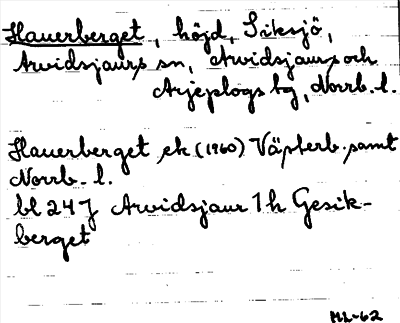 Hauerberget, höjd, Siksjö,
Arvidsjaurs sn, Arvidsjaurs och
Arjeplogs tg, Norrb. l.
Hauerberget, ek (1960) Västerb. samt
Norrb. l.
bl 24 J Arvidsjaur 1 h Gesik-
berget
ML-62